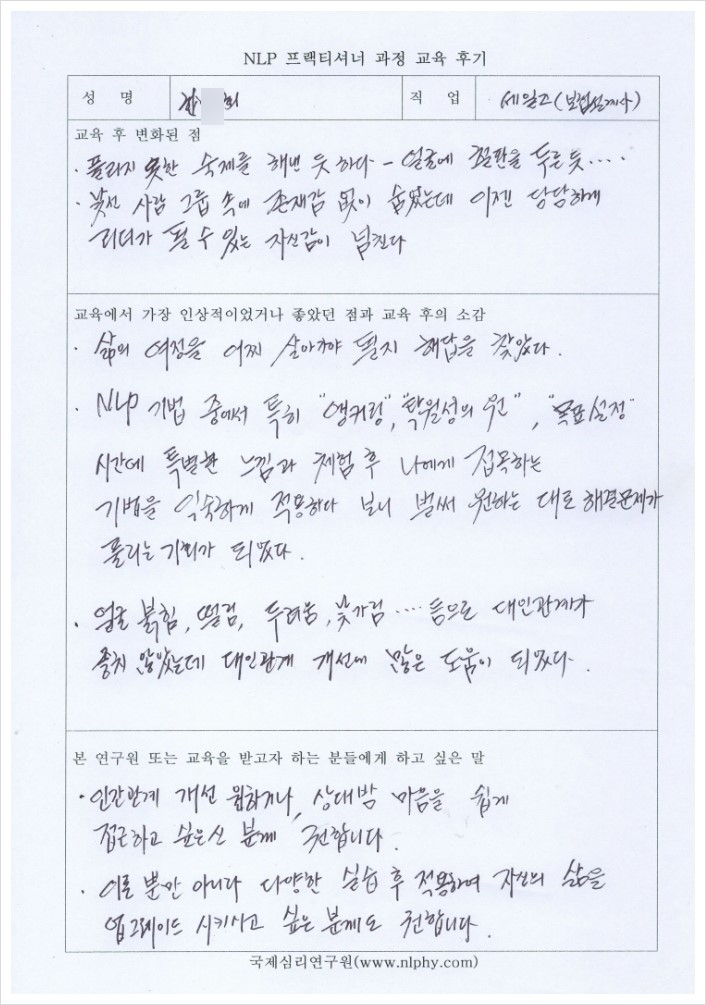 NLP 프랙티셔너 과정 교육 후기
성 명 직 업 세일즈(보험설계사)
교육 후 변화된 점
· 풀리지 못한 숙제를 해낸 듯 하다 - 얼굴에 철판을 두른듯....
· 낯선 사람 그룹 속에 존재감 없이 숨었는데 이젠 당당하게
리더가 될 수 있는 자신감이 넘친다
교육에서 가장 인상적이었거나 좋았던 점과 교육 후의 소감
· 삶의 여정을 어찌 살아가야 될지 해답을 찾았다.
· NLP 기법 중에서 특히 "앵커링", "탁월성의 원", "목표설정"
시간에 특별한 느낌과 체험 후 나에게 접목하는
기법을 익숙하게 적용하다 보니 벌써 원하는 대로 해결문제가
풀리는 기회가 되었다.
· 얼굴 붉힘, 떨림, 두려움, 낯가림 .... 등으로 대인관계가
좋치 않았는데 대인관계 개선에 많은 도움이 되었다.
본 연구원 또는 교육을 받고자 하는 분들에게 하고 싶은 말
· 인간관계 개선 원하거나, 상대방 마음을 쉽게
접근하고 싶은신 분께 권합니다.
· 이론 뿐만 아니라 다양한 실습 후 적용하여 자신의 삶을
업그레이드 시키시고 싶은 분께도 권합니다.
국제심리연구원(www.nlphy.com)